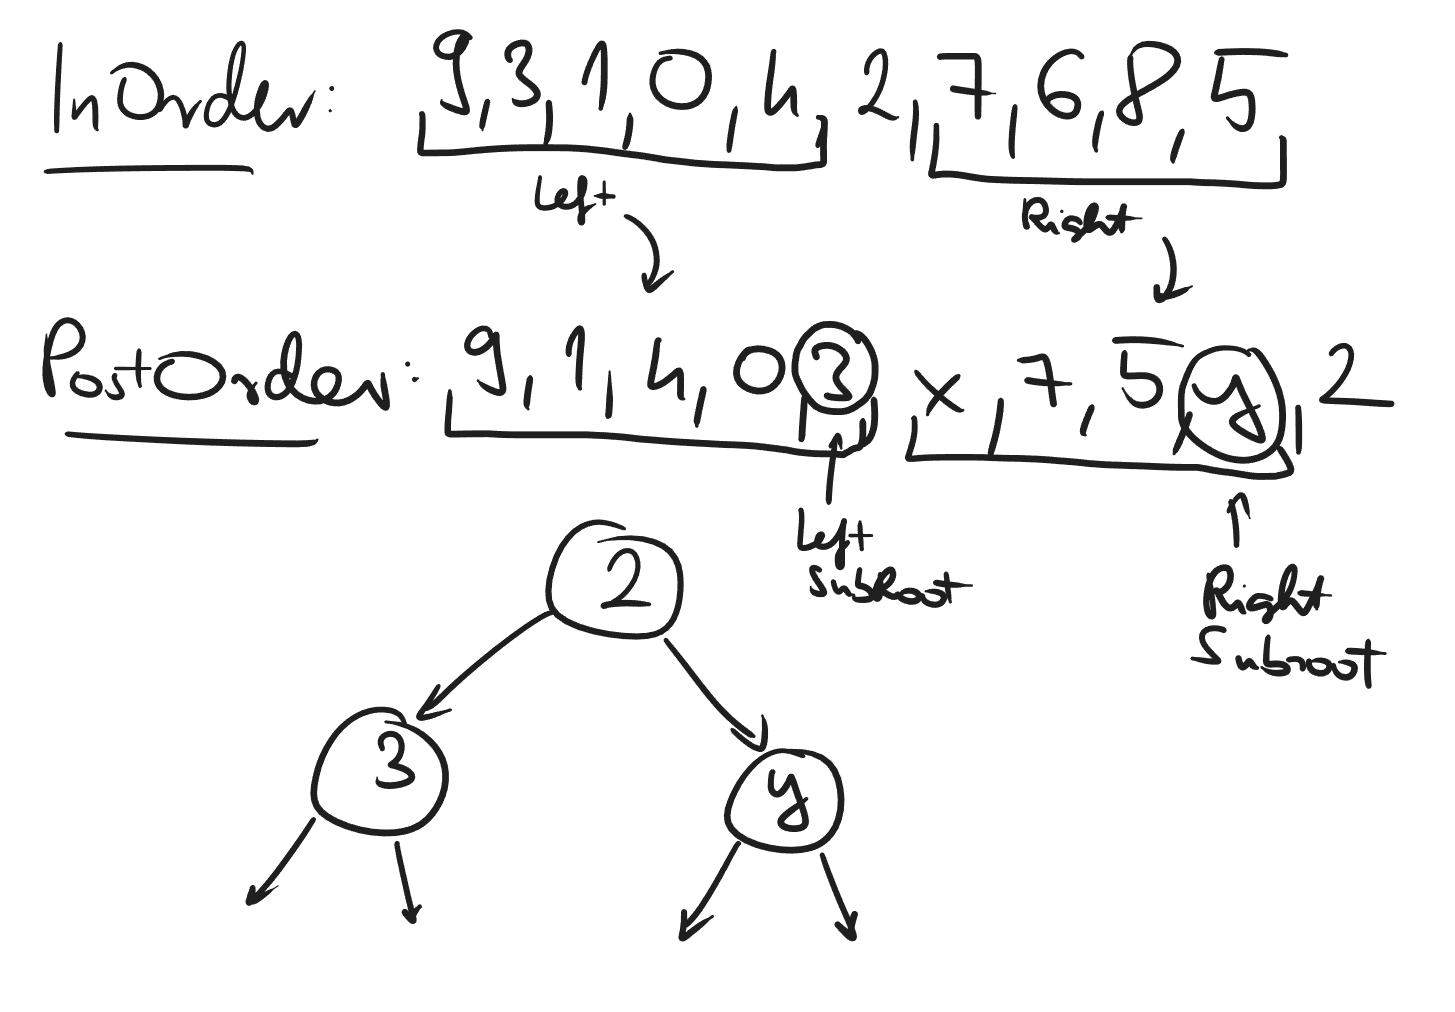 InOrder: 9, 3, 1, 0, 4, 2, 7, 6, 8, 5
Left
Right
PostOrder: 9, 1, 4, 0 3, x, 7, 5, y, 2
Left
SubRoot
Right
Subroot
2
3
y